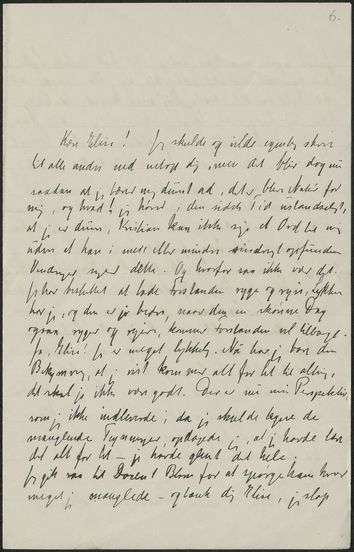 6.
Kære Elise! Jeg skulde og vilde egentlig skrive
til alle andre end netop dig, men det bliver dog nu
saadan at jeg bærer mig dumt ad, det er blevet Natur for
mig, og hvad! jeg hører i den sidste Tid ustandseligt,
at jeg er dum, Kristian kan ikke sige et Ord til mig
uden at han i mere eller mindre opfunden
Vendinger siger dette. Og hvorfor saa ikke være det.
Jeg har besluttet at lade Forstanden ryge og rejse, Lykken
har jeg, og den er jo bedre, naar den en skønne Dag
ogsaa ryger og rejser, kommer Forstanden vel tilbage.
Ja, Elise! jeg er meget lykkelig. Nu har jeg bare den
Bekymring, at jeg vist kommer alt for let til alting,
det skal jo ikke være godt. Der er nu min Perspektiv,
som jeg ikke indleverede; da jeg skulde tegne de
manglende Tegninger, opdagede jeg, at jeg havde lært
det alt for let — jeg havde glemt det hele.
Jeg gik saa til Docent Blom for at spørge ham hvor
meget jeg manglede — og tænk dig Elise, jeg slap